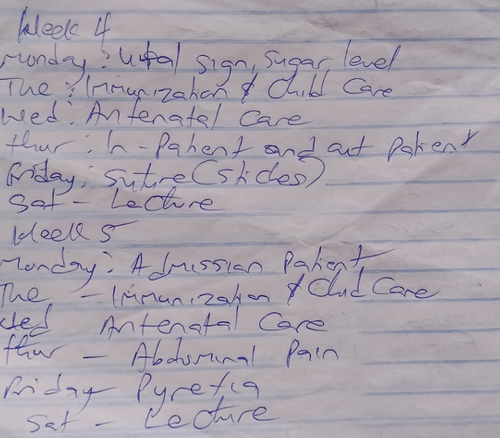 Week 4
Monday: Vital sign, sugar level
The: Immunization & Child Care
Wed: Antenatal Care
thur: In-Patient and out patient
Friday: Suture (Stiches)
Sat - Lecture
Week 5
Monday: Admission Patient
The - Immunization & Child Care
Wed Antenatal Care
thur - Abdominal Pain
Friday Pyrexia
Sat - Lecture